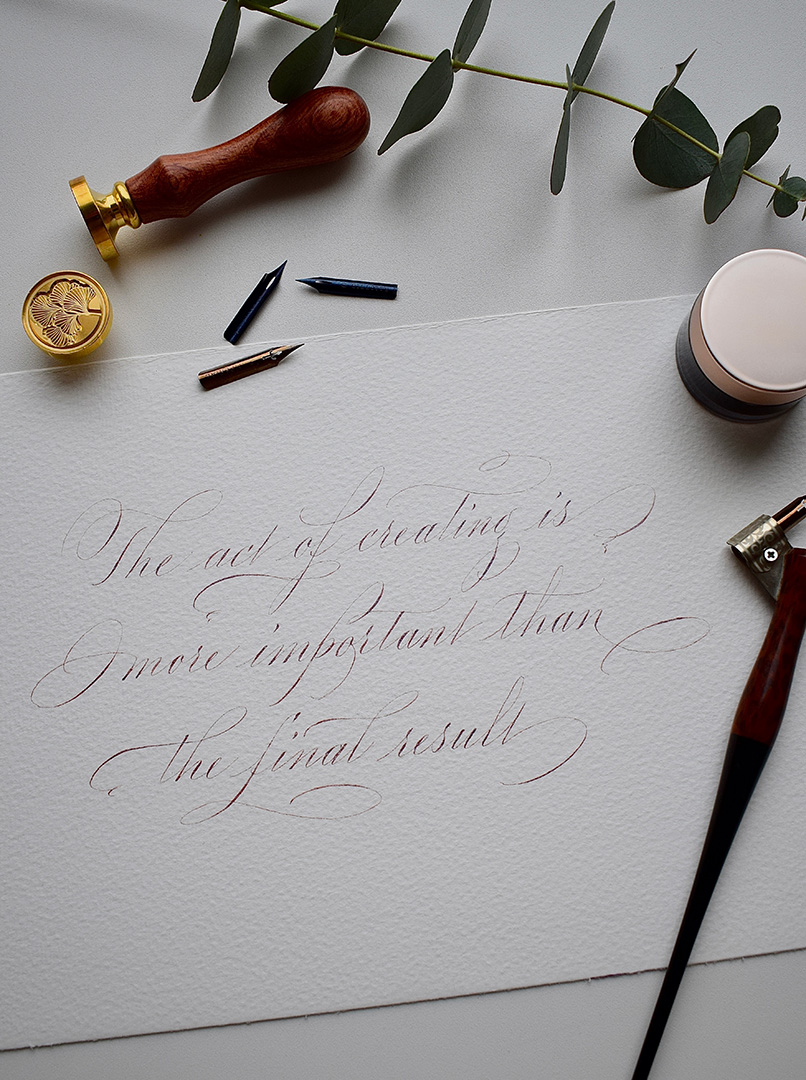 The act of creating is
more important than
the final result